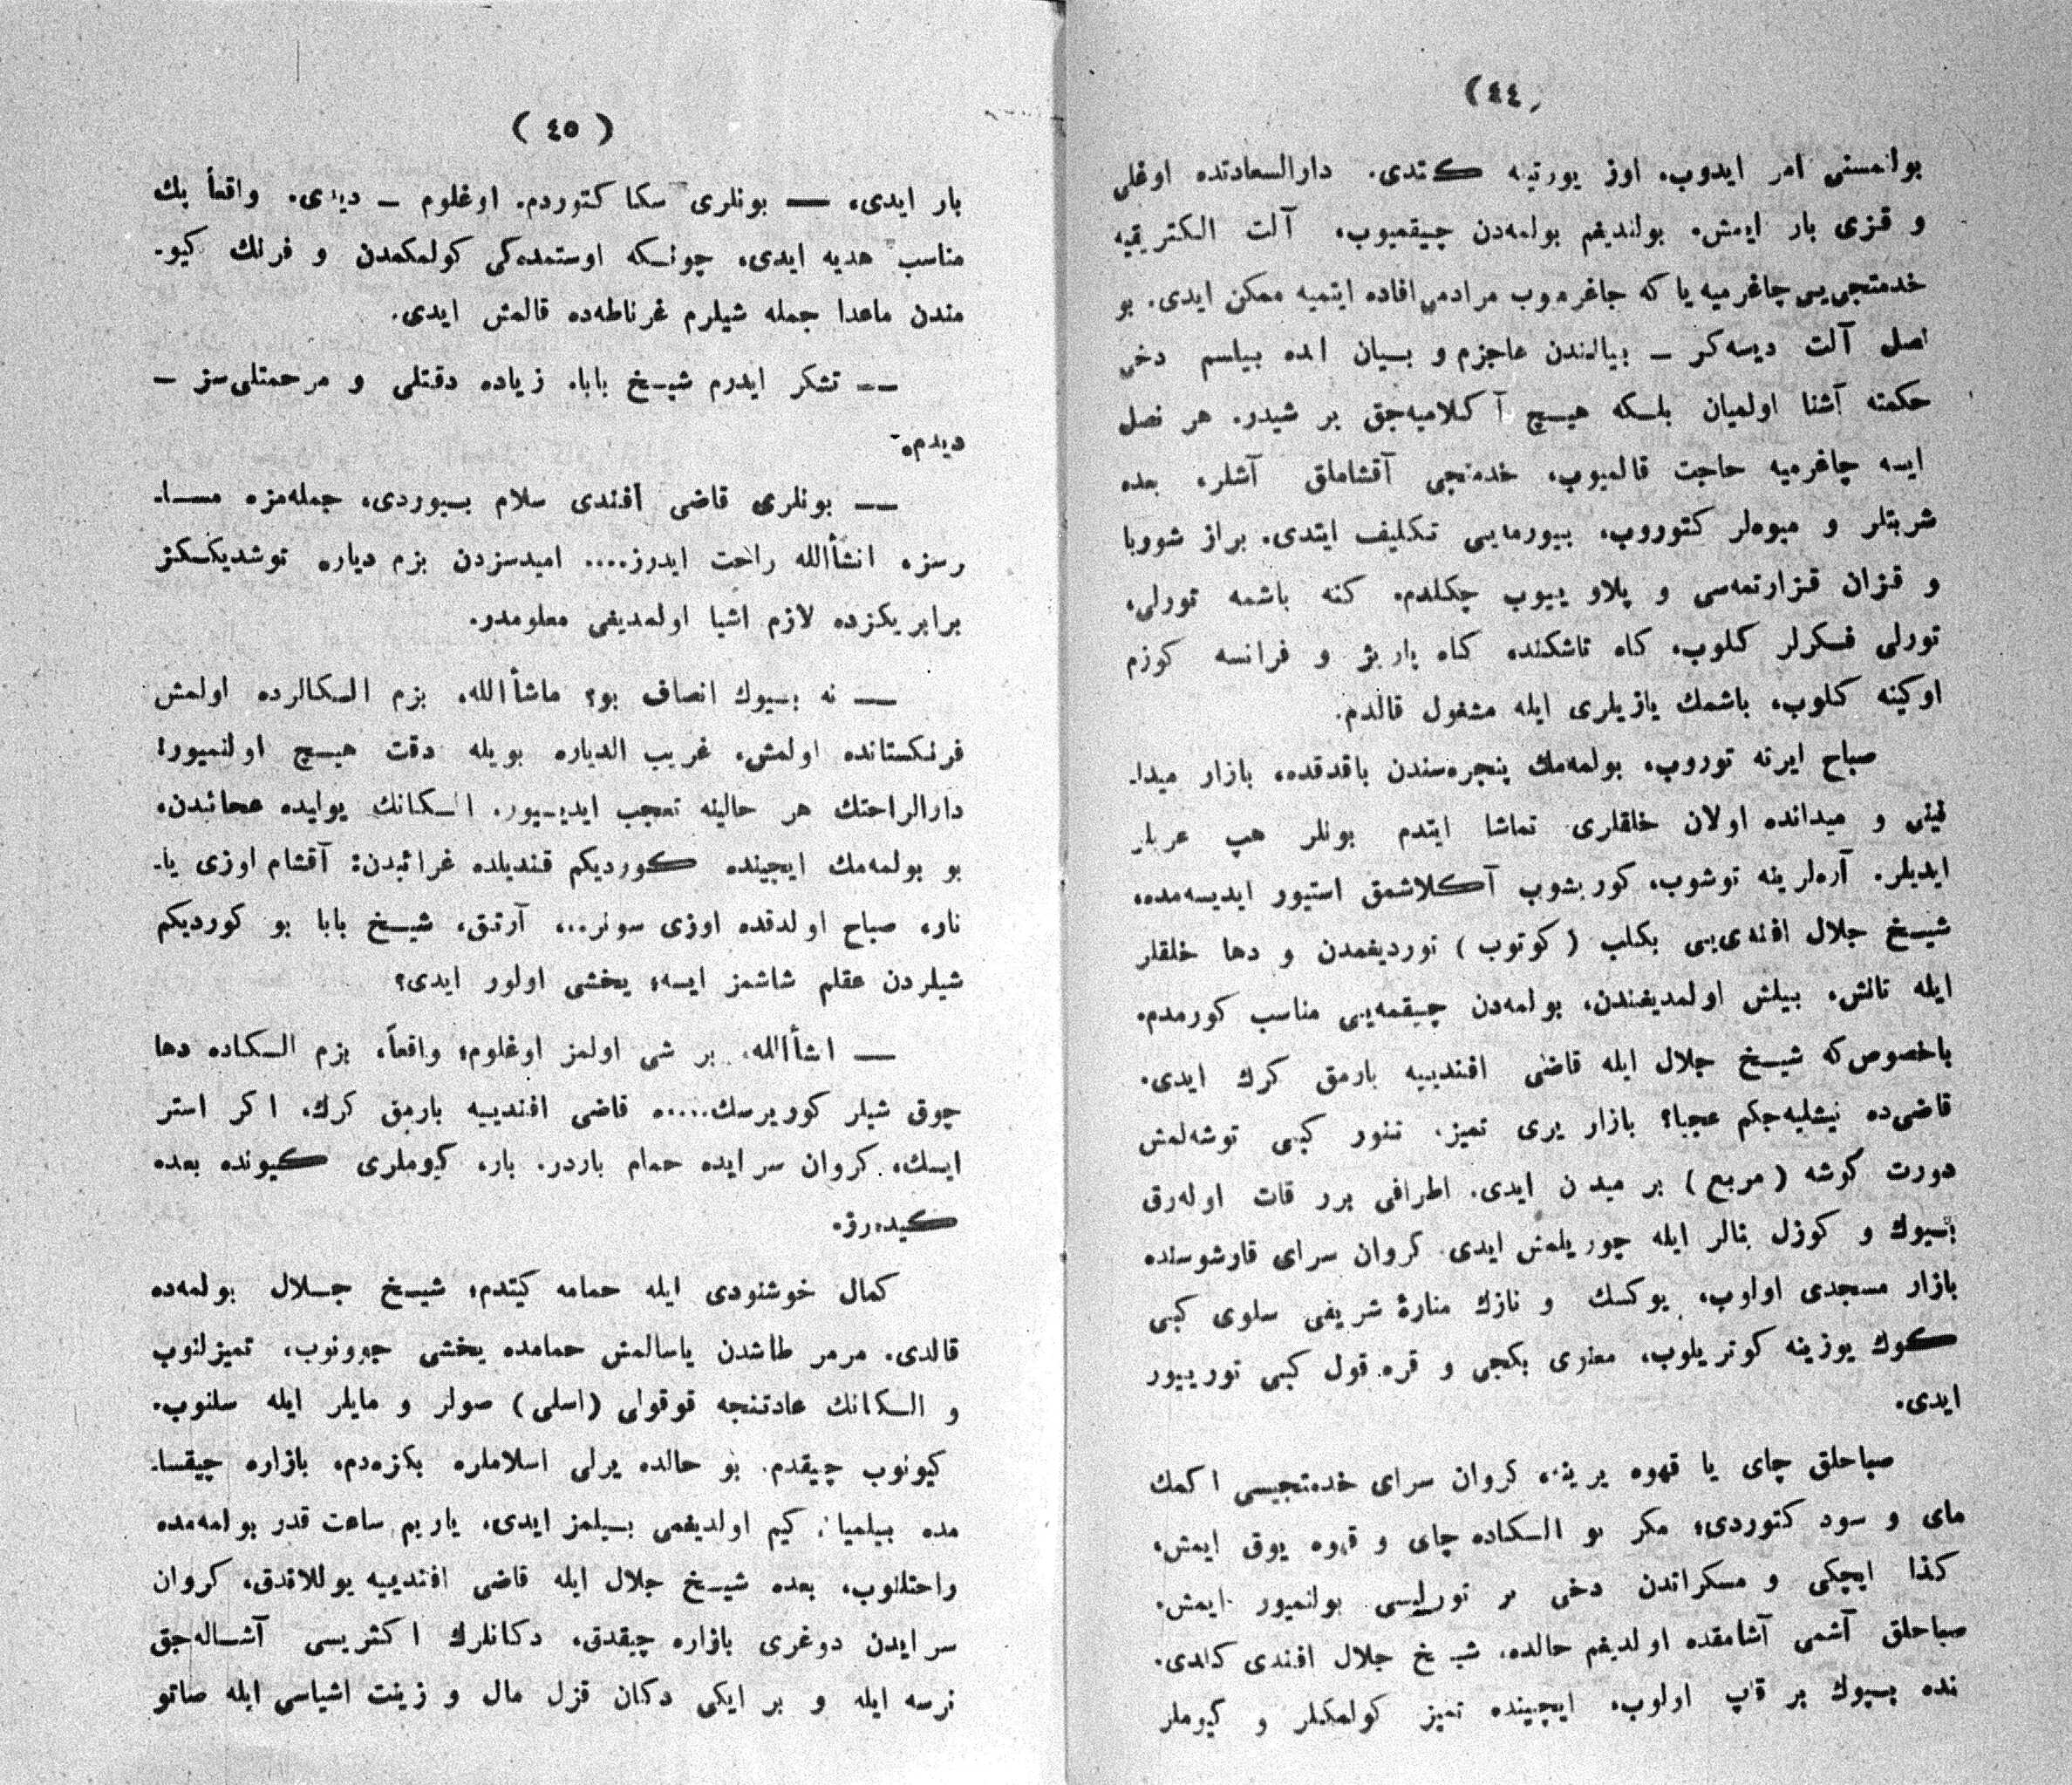 (٤٤)
بولنمسنی امر ایدوب، اوز یورتینه كتدی. دارالسعادتده اوغلی
و قزی بار ایمش. بولندیغم بولمه‌دن چیقمیوب، آلت الکتریقیه
خدمتجی‌یی چاغرمیه یا که چاغرموب مرادمی افاده ایتمیه ممکن ایدی. بو
نصل آلت دیسه‌کز ــ بیاتندن عاجزم و بیان ایده بیلسم دخی
حکمته آشنا اولمیان بلکه هیچ آکلامیه‌جق بر شیدر. هر نصل
ایسه چاغرمیه حاجت قالمیوب، خدمتجی آقشاملق آشلر، بعده
شربتلر و میوه‌لر کتوروب، بیورمایی تکلیف ایتدی. براز شوربا
و قزان قزارتمه‌سی و پلاو ییوب چکلدم. کنه باشمه تورلی،
تورلی فکرلر کلوب، کاه تاشکنده کاه پاریژ و فرانسه کوزم
اوکینه کلوب، باشمك یازیلری ایله مشغول قالدم.
صباح ایرته توروب، بولمه‌مك پنجره‌سندن باقدقده، بازار میدا۔
نینی و میدانده اولان خلقلری تماشا ایتدم بونلر هپ عربلر
ایدیلر. آره‌لرینه توشوب، کوریشوب آکلاشمق استیور ایدیسه‌مده،
شیخ جلال افندی‌یی بکلب (کوتوب) توردیغمدن و دها خلقلر
ایله تانش، بیلش اولمدیغندن، بولمه‌دن چیقمه‌یی مناسب کورمدم.
باخصوص که شیخ جلال ایله قاضی افندییه بارمق کرك ایدی.
قاضی‌ده نیشلیه‌جکم عجبا؟ بازار یری تمیز، تنور کبی توشه‌لمش
دورت کوشه (مربع) بر میدان ایدی. اطرافی برر قات اوله‌رق
بیوك و کوزل بنالر ایله چوریلمش ایدی. کروان سرای قارشوسنده
بازار مسجدی اولوب، یوکسك و نازك منارۀ شریفی سلوی کبی
کوك یوزینه کوتریلوب، معنوی بکجی و قره قول کبی تورییور
ایدی.
صباحلق چای یا قهوه یرینه، کروان سرای خدمتجیسی اکمك
مای و سود کتوردی؛ مکر بو السکاده چای و قهوه یوق ایمش،
کذا ایچکی و مسکراتدن دخی بر تورلیسی بولنمیور ایمش.
صباحلق آشمی آشامقده اولدیغم حالده، شیخ جلال افندی کلدی.
نده بیوك بر قاپ اولوب، ایچینده تمیز کولمکلر و کیوملر
( ٤٥ )
بار ایدی، ــ بونلری سکا کتوردم. اوغلوم ــ دیدی. واقعأ پك
مناسب هدیه ایدی، چونکه اوستمده‌کی کولمکمدن و فرنك کیو۔
مندن ماعدا جمله شیلرم غرناطه‌ده قالمش ایدی.
ــ تشکر ایدرم شیخ بابا. زیاده دقتلی و مرحمتلی‌سز ــ
دیدم.
ــ بونلری قاضی افندی سلام بیوردی، جمله‌مزه مسا۔
رسزه انشأالله راحت ایدرز.... امیدسزدن بزم دیاره توشدیککز
برابریکزده لازم اشیا اولمدیغی معلومدر.
ــ نه بیوك انصاف بو؟ ماشأالله، بزم السکالرده اولمش
فرنکستانده اولمش، غریب الدیاره بویله دقت هیچ اولنمیور!
دارالراحتك هر حالینه تعجب ایدییور. السکانك یولیده عجائبدن،
بو بولمه‌مك ایچینده کوردیکم قندیلده غرائبدن: آقشام اوزی یا۔
نار، صباح اولدقده اوزی سونر... آرتق، شیخ بابا بو کوردیکم
شیلردن عقلم شاشمز ایسه؛ یخشی اولور ایدی؟
ــ انشأالله، بر شی اولمز اوغلوم؛ واقعاً، بزم السکاده دها
چوق شیلر کوریرسك..... قاضی افندییه بارمق کرك، اکر استر
ایسك، کروان سرایده حمام باردر. بار، کیوملری کیونده بعده
کیده‌رز.
کمال خوشنودی ایله حمامه کیتدم؛ شیخ جلال بولمه‌ده
قالدی. مرمر طاشدن یاسالمش حمامده یخشی جوونوب، تمیزلنوب
و السکانك عادتنجه قوقولی (اسلی) صولر و مایلر ایله سلنوب.
کیونوب چیقدم. بو حالده یرلی اسلاملره بکزه‌دم، بازاره چیقسا۔
مده بیلمیان کیم اولدیغمی بیلمز ایدی، یاریم ساعت قدر بولمه‌مده
راحتلنوب، بعده شیخ جلال ایله قاضی افندییه یوللاندق، کروان
سرایدن دوغری بازاره چیقدق، دکانلرك اکثریسی آشاله‌جق
نرسه ایله و بر ایکی دکان قزل مال و زینت اشیاسی ایله صاتو